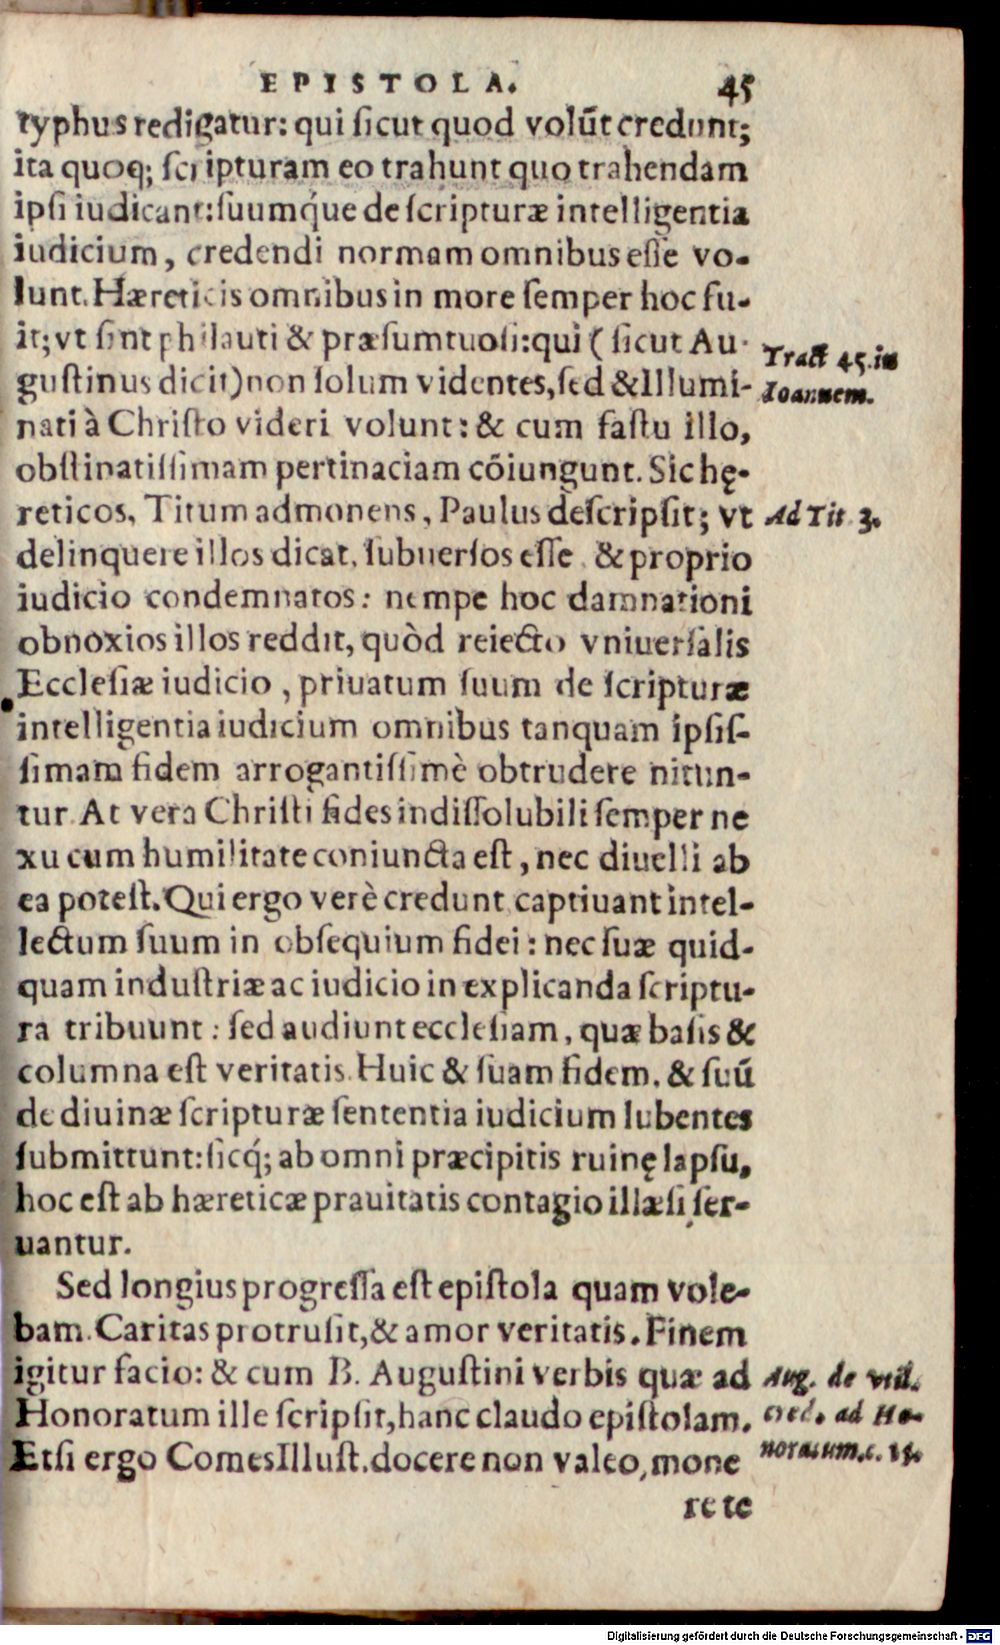 EPISTOLA. 45
typhus redigatur: qui sicut quod volũt credunt;
ita quoq; scripturam eo trahunt quo trahendam
ipsi iudicant: suumq́ue de scripturæ intelligentia
iudicium, credendi normam omnibus esse vo-
lunt. Hæreticis omnibus in more semper hoc fu-
it; vt sint philauti & præsumtuosi: qui ( sicut Au-
gustinus dicit) non solum videntes, sed & Illumi-
Tract 45. in
Ioannem.
nati à Christo videri volunt: & cum fastu illo,
obstinatissimam pertinaciam cõiungunt. Sic hę-
reticos, Titum admonens, Paulus descripsit; vt
Ad Tit 3.
delinquere illos dicat, subuersos esse & proprio
iudicio condemnatos: nempe hoc damnationi
obnoxios illos reddit, quòd reiecto vniuersalis
Ecclesiæ iudicio, priuatum suum de scripturæ
intelligentia iudicium omnibus tanquam ipsis-
simam fidem arrogantissimè obtrudere nitun-
tur. At vera Christi fides indissolubili semper ne
xu cum humilitate coniuncta est, nec diuelli ab
ea potest. Qui ergo verè credunt captiuant intel-
lectum suum in obsequium fidei: nec suæ quid-
quam industriæ ac iudicio in explicanda scriptu-
ra tribuunt: sed audiunt ecclesiam, quæ basis &
columna est veritatis. Huic & suam fidem, & suũ
de diuinæ scripturæ sententia iudicium lubentes
submittunt: sicq́; ab omni præcipitis ruinę lapsu,
hoc est ab hæreticæ prauitatis contagio illæsi ser-
uantur.
Sed longius progressa est epistola quam vole-
bam. Caritas protrusit, & amor veritatis. Finem
igitur facio: & cum B. Augustini verbis quæ ad
Honoratum ille scripsit, hanc claudo epistolam.
Etsi ergo Comes Illust. docere non valeo, mone
Aug. de vtil.
cred. ad Ho-
noratum. c. 15.
re te
Digitalisierung gefördert durch die Deutsche Forschungsgemeinschaft - DFG